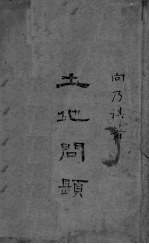 向乃祺著
土地問題